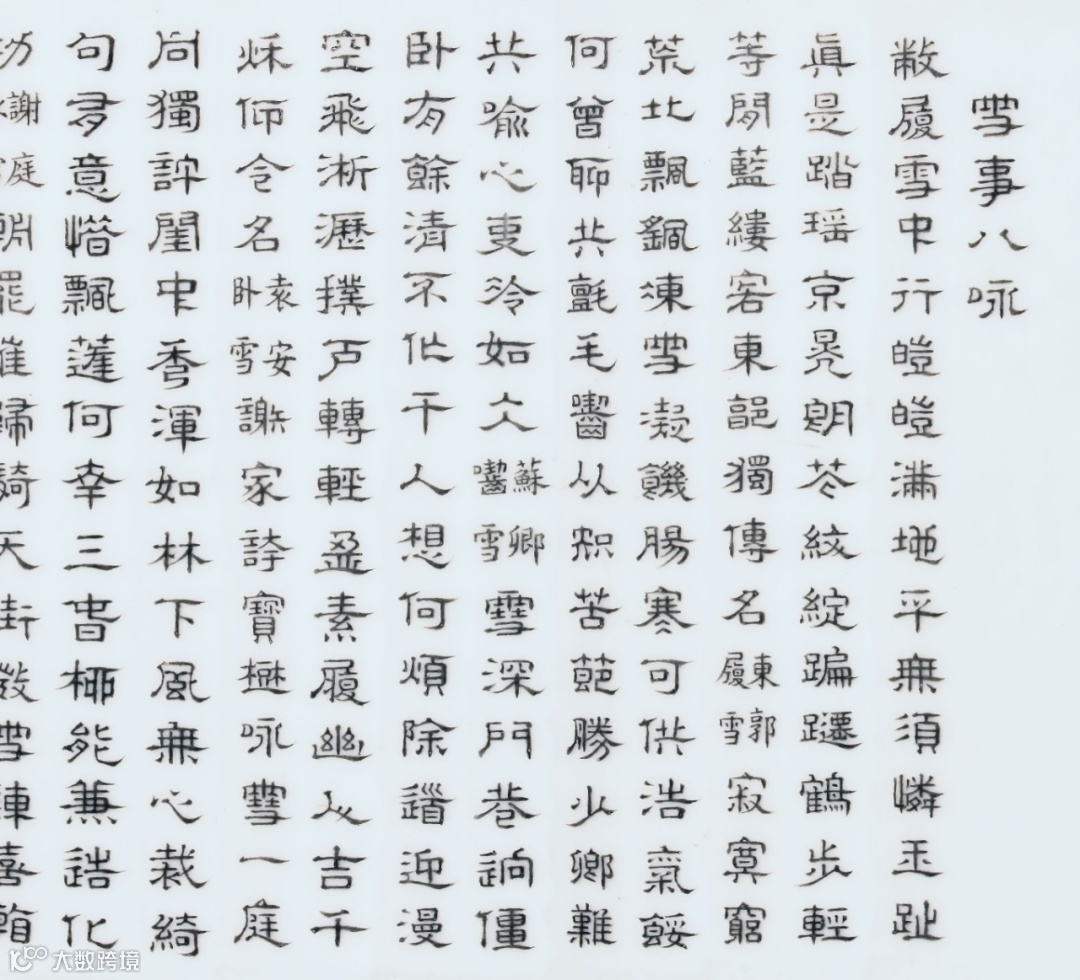 雪事八咏
敝履雪中行皚皚滿地平無須憐玉趾
眞是踏瑶京晃朗紋綻蹁躚鶴步輕
等閒藍縷客東郭獨傳名東郭履雪寂寞窮
荒北飄凍雪凝饑腸寒可供浩氣餒
何曾聊共氈毛齧從知苦節勝少卿難
共喻心更冷如仌蘇卿齧雪雪深門巷逈僵
卧有餘清不作干人想何煩除道迎漫
空飛淅瀝撲戶轉輕盈素履幽人吉千
秌仰令名袁安卧雪謝家誇寶樹咏雪一庭
同獨許閨中秀渾如林下風無心裁綺
句有意惜飄蓬何幸三春柳能兼造化
功謝庭咏雪朝罷催歸騎天街散雪陣喜
大数跨境